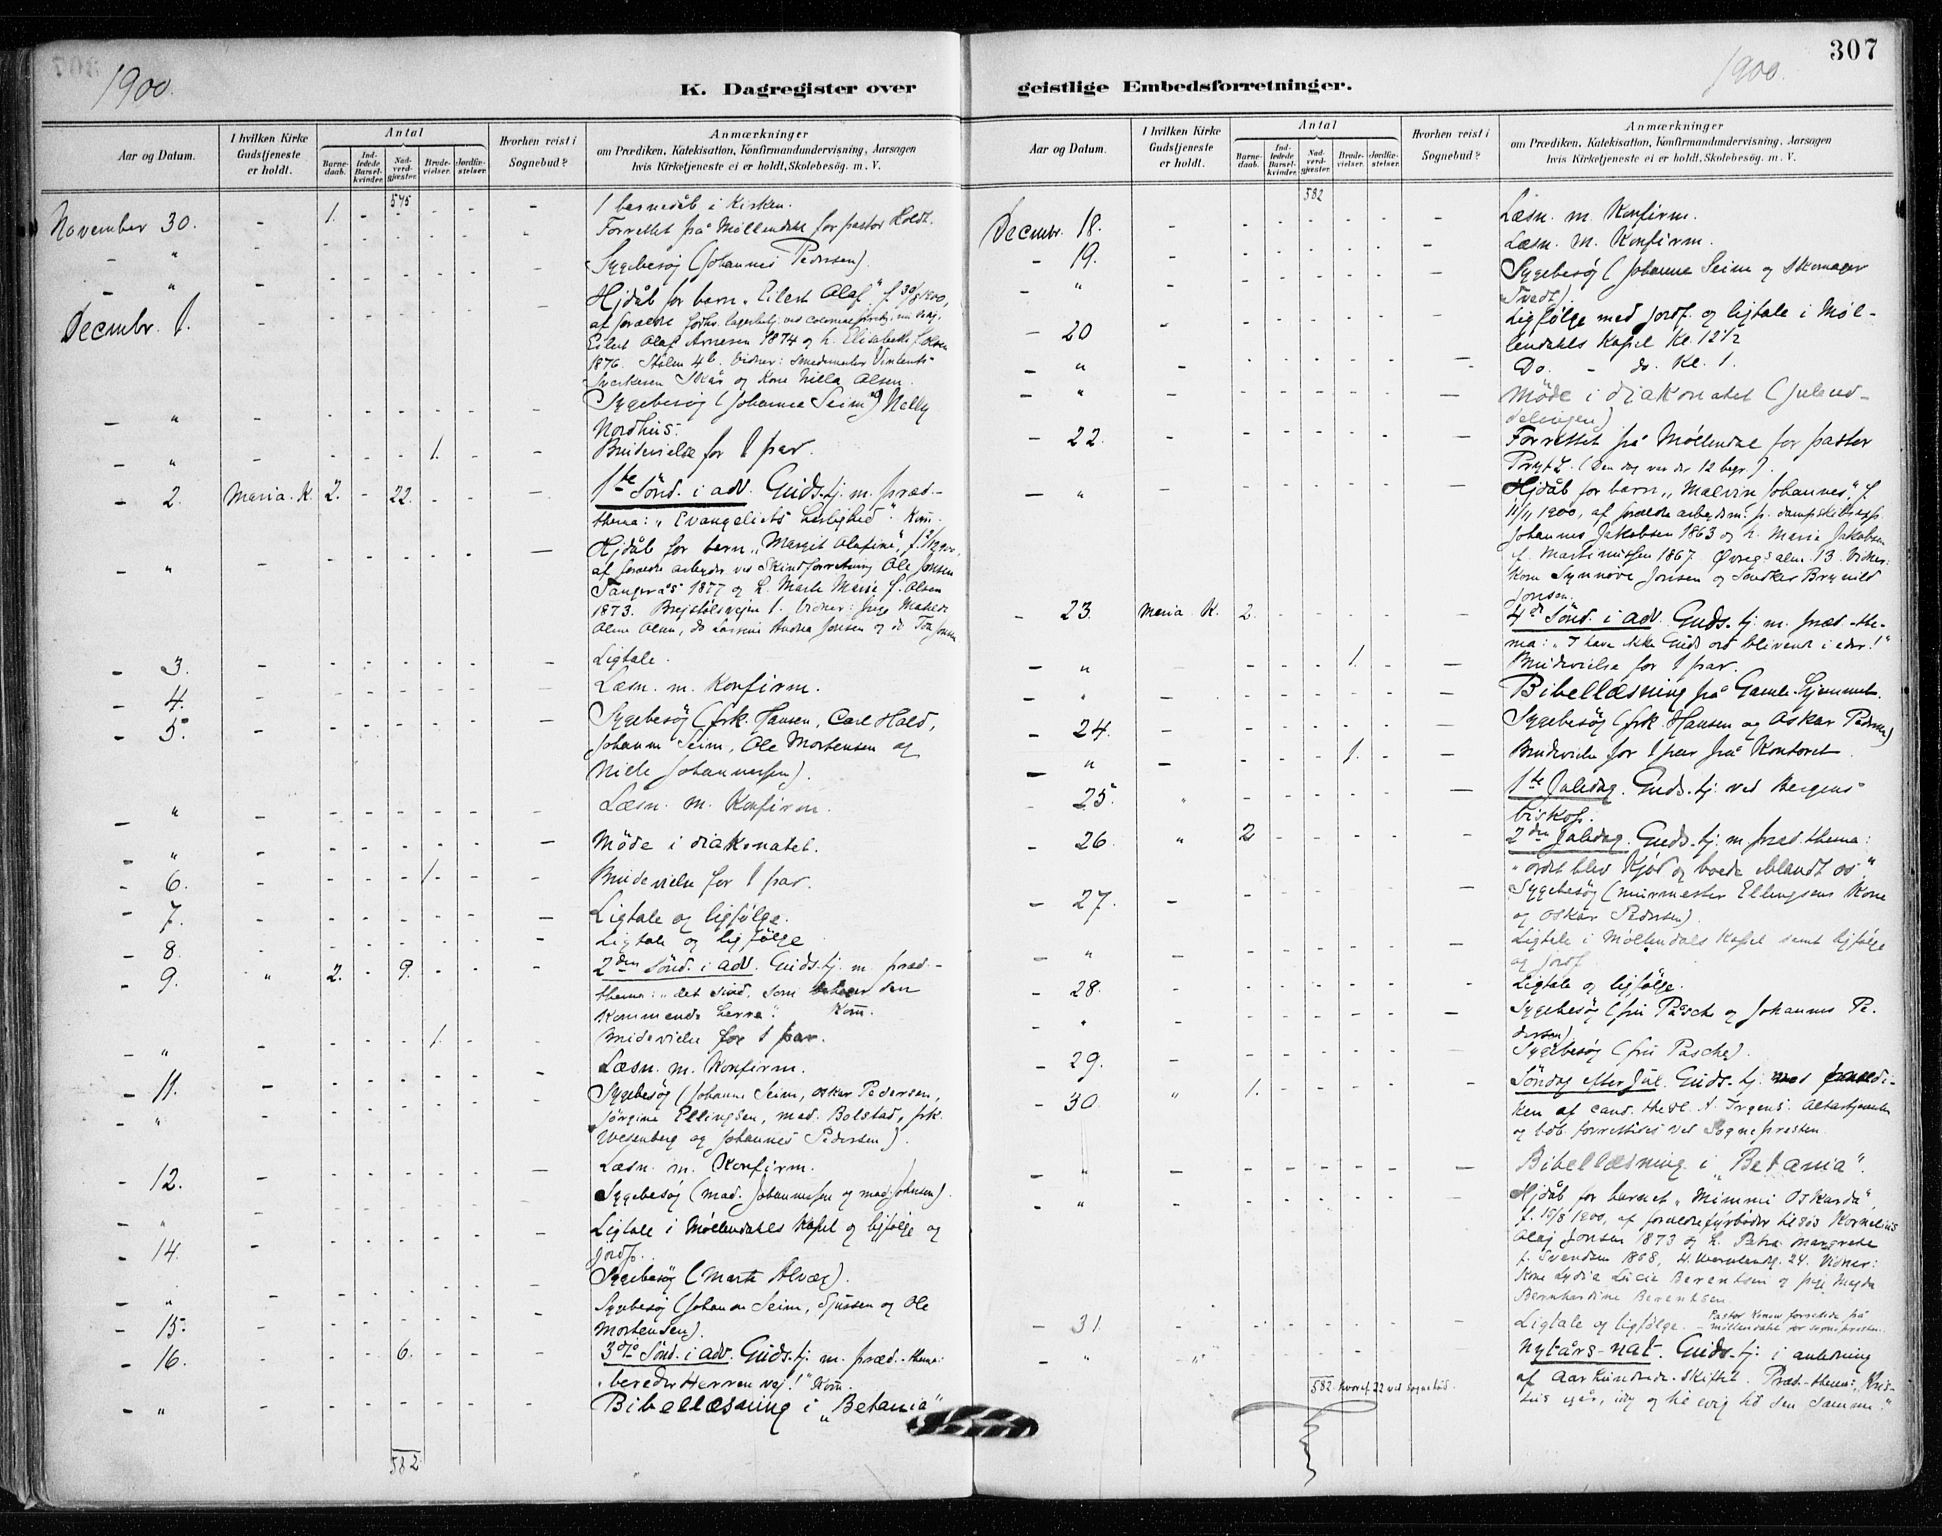 307
1900.
1900.
K. Dagregister over
geistlige Embedsforretninger.
Aar og Datum.
I hvilken Kirke Gudstjeneste er holdt.
Antal
Barne-daab.
Ind-ledede Barsel-kvinder.
Nad-verd-gjæster.
Brude-vielser.
Jordfæ-stelser.
Hvorhen reist i Sognebud?
Anmærkninger
om Prædiken, Katekisation, Konfirmandundervisning, Aarsagen
hvis Kirketjeneste ei er holdt, Skolebesög. m. V.
575
November 30. - 1. - - - - - 1 barnedåb i Kirken.
- " Forrettet på Møllendal for pastor Holdt.
- " Sygebesøg (Johannes Pedersen).
Decembr. 1. - Hjdåb for barn "Eilert Olaf" f. 30/8 1900,
af forældre
Eilert Olaf Arnesen 1874 og h. Elisabeth f. Olsen
1876. Stølen 4 b. Vidner:
Skår og Kone Nilla Olsen.
- " Sygebesøg (Johanne Seim) Nelly
Nordhus.
- " 1. Brudevielse for 1 par.
- 2. Maria. K. 2. - 22. 1ste Sönd. i adv. Guds.tj. m. præd.-
thema: "Evangeliets herlighed". Kom.
- " Hjdåb for barn "Margit Olafine",
af forældre arbeider ved Skindforretning Ole Jonsen
Tangerås 1877 og h. Marte Marie f. Olsen
1873. Brejstølsvejen 1. Vidner: Pige Mathilde
Oline Olsen, do Andrea Jonsen og do Jonsen
- 3. Ligtale.
- 4. Læsn. m. Konfirm.
- 5. Sygebesøg (frk. Hansen, Carl Hald,
Johanne Seim, Ole Mortensen og
Niels Johannessen).
- " Læsn. m. Konfirm.
- " Möde i diakonatet.
- 6. 1. Brudevielse for 1 par.
- 7. Ligtale og ligfølge.
- 8. Ligtale og ligfølge
- 9. " 2. - 9. 2den Sönd. i adv. Guds.tj. m. præd.-
thema: "det sind, som den
kommende herre". Kom.
- " 1. Brudevielse for 1 par.
- 11. Læsn. m. Konfirm.
- " Sygebesøg (Johanne Seim, Oskar Pedersen,
Jörgine Ellingsen, mad. Bolstad, frk.
Wesenberg og Johannes Pedersen).
- 12. Læsn. m. Konfirm.
- " Sygebesøg (mad. Johannessen og mad. Johnsen).
- 14. Ligtale i Møllendahls Kapel og ligfølge og
jordf.
- " Sygebesøg (Marte Alvær).
- 15. Sygebesøg (Johanne Seim, Sjursen og Ole
Mortensen).
- 16. 6. 3die Sönd. i adv. Guds.tj. m. præd.-thema:
"bereder Herren vej!" Kom.
- " Bibellæsning i "Betania"
582
Aar og Datum.
I hvilken Kirke Gudstjeneste er holdt.
Antal
Barne-daab.
Ind-ledede Barsel-kvinder.
Nad-verd-gjæster.
Brude-vielser.
Jordfæ-stelser.
Hvorhen reist i Sognebud?
Anmærkninger
om Prædiken, Katekisation, Konfirmandundervisning, Aarsagen
hvis Kirketjeneste ei er holdt, Skolebesög. m. V.
582
Decembr. 18. Læsn. m. Konfirm.
- 19. Læsn. m. Konfirm.
- " Sygebesøg (Johanne Seim og skomager
Tvedt).
- 20 Ligfølge med jordf. og ligtale i Møl-
lendahls Kapel Kl. 12 1/2
- " Do. - do. Kl. 1.
- " Möde i diakonatet (juleud-
delingen)
- 22. Forrettet på Møllendal for pastor
Prytz. (Den dag var der 12 begr.).
- " Hjdåb for barn "Malvin Johannes", f.
11/11 1900, af forældre arbeidsm. p. dampskibsexp.
Johannes Jakobsen 1863 og h. Marie Jakobsen
f. Martinussen 1867. Øvregsalm. 13. Vidner:
Kone Synnøve Jonsen og Snedker Brynild
Jonsen.
- 23. Maria K. 2. 4de Sönd. i adv. Guds.tj. m. præd.-the-
ma: "I have ikke Guds ord blivende i eder!"
- " 1. Brudevielse for 1 par.
- " Bibellæsning på Gamle-hjemmet.
- 24. Sygebesøg (frk. Hansen og Oskar Pedersen)
- " 1. Brudevielse for 1 par på Kontoret.
- 25. " 1ste Juledag. Guds.tj. ved Bergens
biskop.
- 26. " 2 2den Juledag. Guds.tj. m. præd.thema:
"ordet blev Kjød og boede iblandt os."
- 27. Sygebesøg (murmester Ellingsens Kone
og Oskar Pedersen).
- " Ligtale i Møllendals Kapel samt ligfølge
og jordf.
- 28. Ligtale og ligfølge.
- " Sygebesøg (fru Pasche og Johannes Pe-
dersen)
- 29. Sygebesøg (fru Pasche).
- 30. " 1. Söndag efter Jul. Guds.tj. med prædi-
ken af cand. theol. A. Irgens. Altertjenesten
og båb forrettedes ved Sognepresten.
- " Bibellæsning i "Betania".
- " Hjdåb for barnet "Mimmi Oskarda",
f. 10/8 1900, af forældre fyrbøder tilsøs Kornelius
Olaj Jonsen 1873 og h. Petra Margrete
f. Svendsen 1868, 24. Vidner:
Kone Lydia Lucie Berentsen og pige Magda
Bernhardine Berentsen.
- 31. Ligtale og ligfølge. - Pastor Konow forrettede på
møllendahl for sognepresten.
- " " Nytårs-nat. Guds.tj. i anledning
af Aarhundrede-skiftet. Præd.-thema: "Kris-
tus igår, idag og til evig tid den samme."
582 hvoraf 22 ved sognebud.